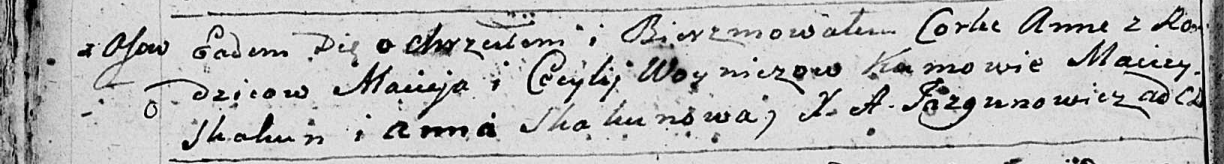 z Osow Eadem Die ochrzciłem i Bierzmowałem Corke Anne z Ro-
dzicow Macieja i Cecylij Woyniczow Kumowie Maciey
Skakun i Anna Skakunowa, X. A. Jazgunowicz